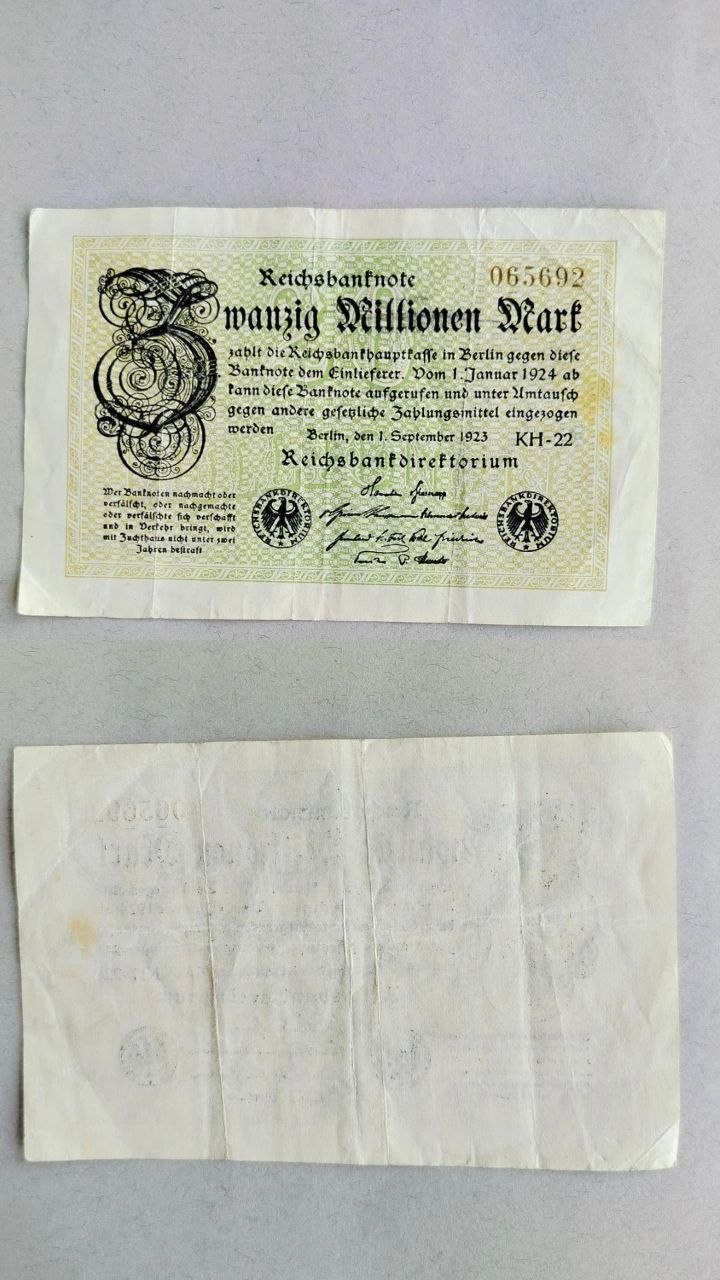 Reichsbanknote 065692
Zwanzig Millionen Mark
zahlt die Reichsbankhauptkasse in Berlin gegen diese
Banknote dem Einlieferer. Vom 1. Januar 1924 ab
kann diese Banknote aufgerufen und unter Umtausch
gegen andere gesetzliche Zahlungsmittel eingezogen
werden
Berlin, den 1. September 1923 KH-22
Reichsbankdirektorium
Wer Banknoten nachmacht oder
verfälscht, oder nachgemachte
oder verfälschte sich verschafft
und in Verkehr bringt, wird
mit Zuchthaus nicht unter zwei
Jahren bestraft
REICHSBANKDIREKTORIUM
REICHSBANKDIREKTORIUM